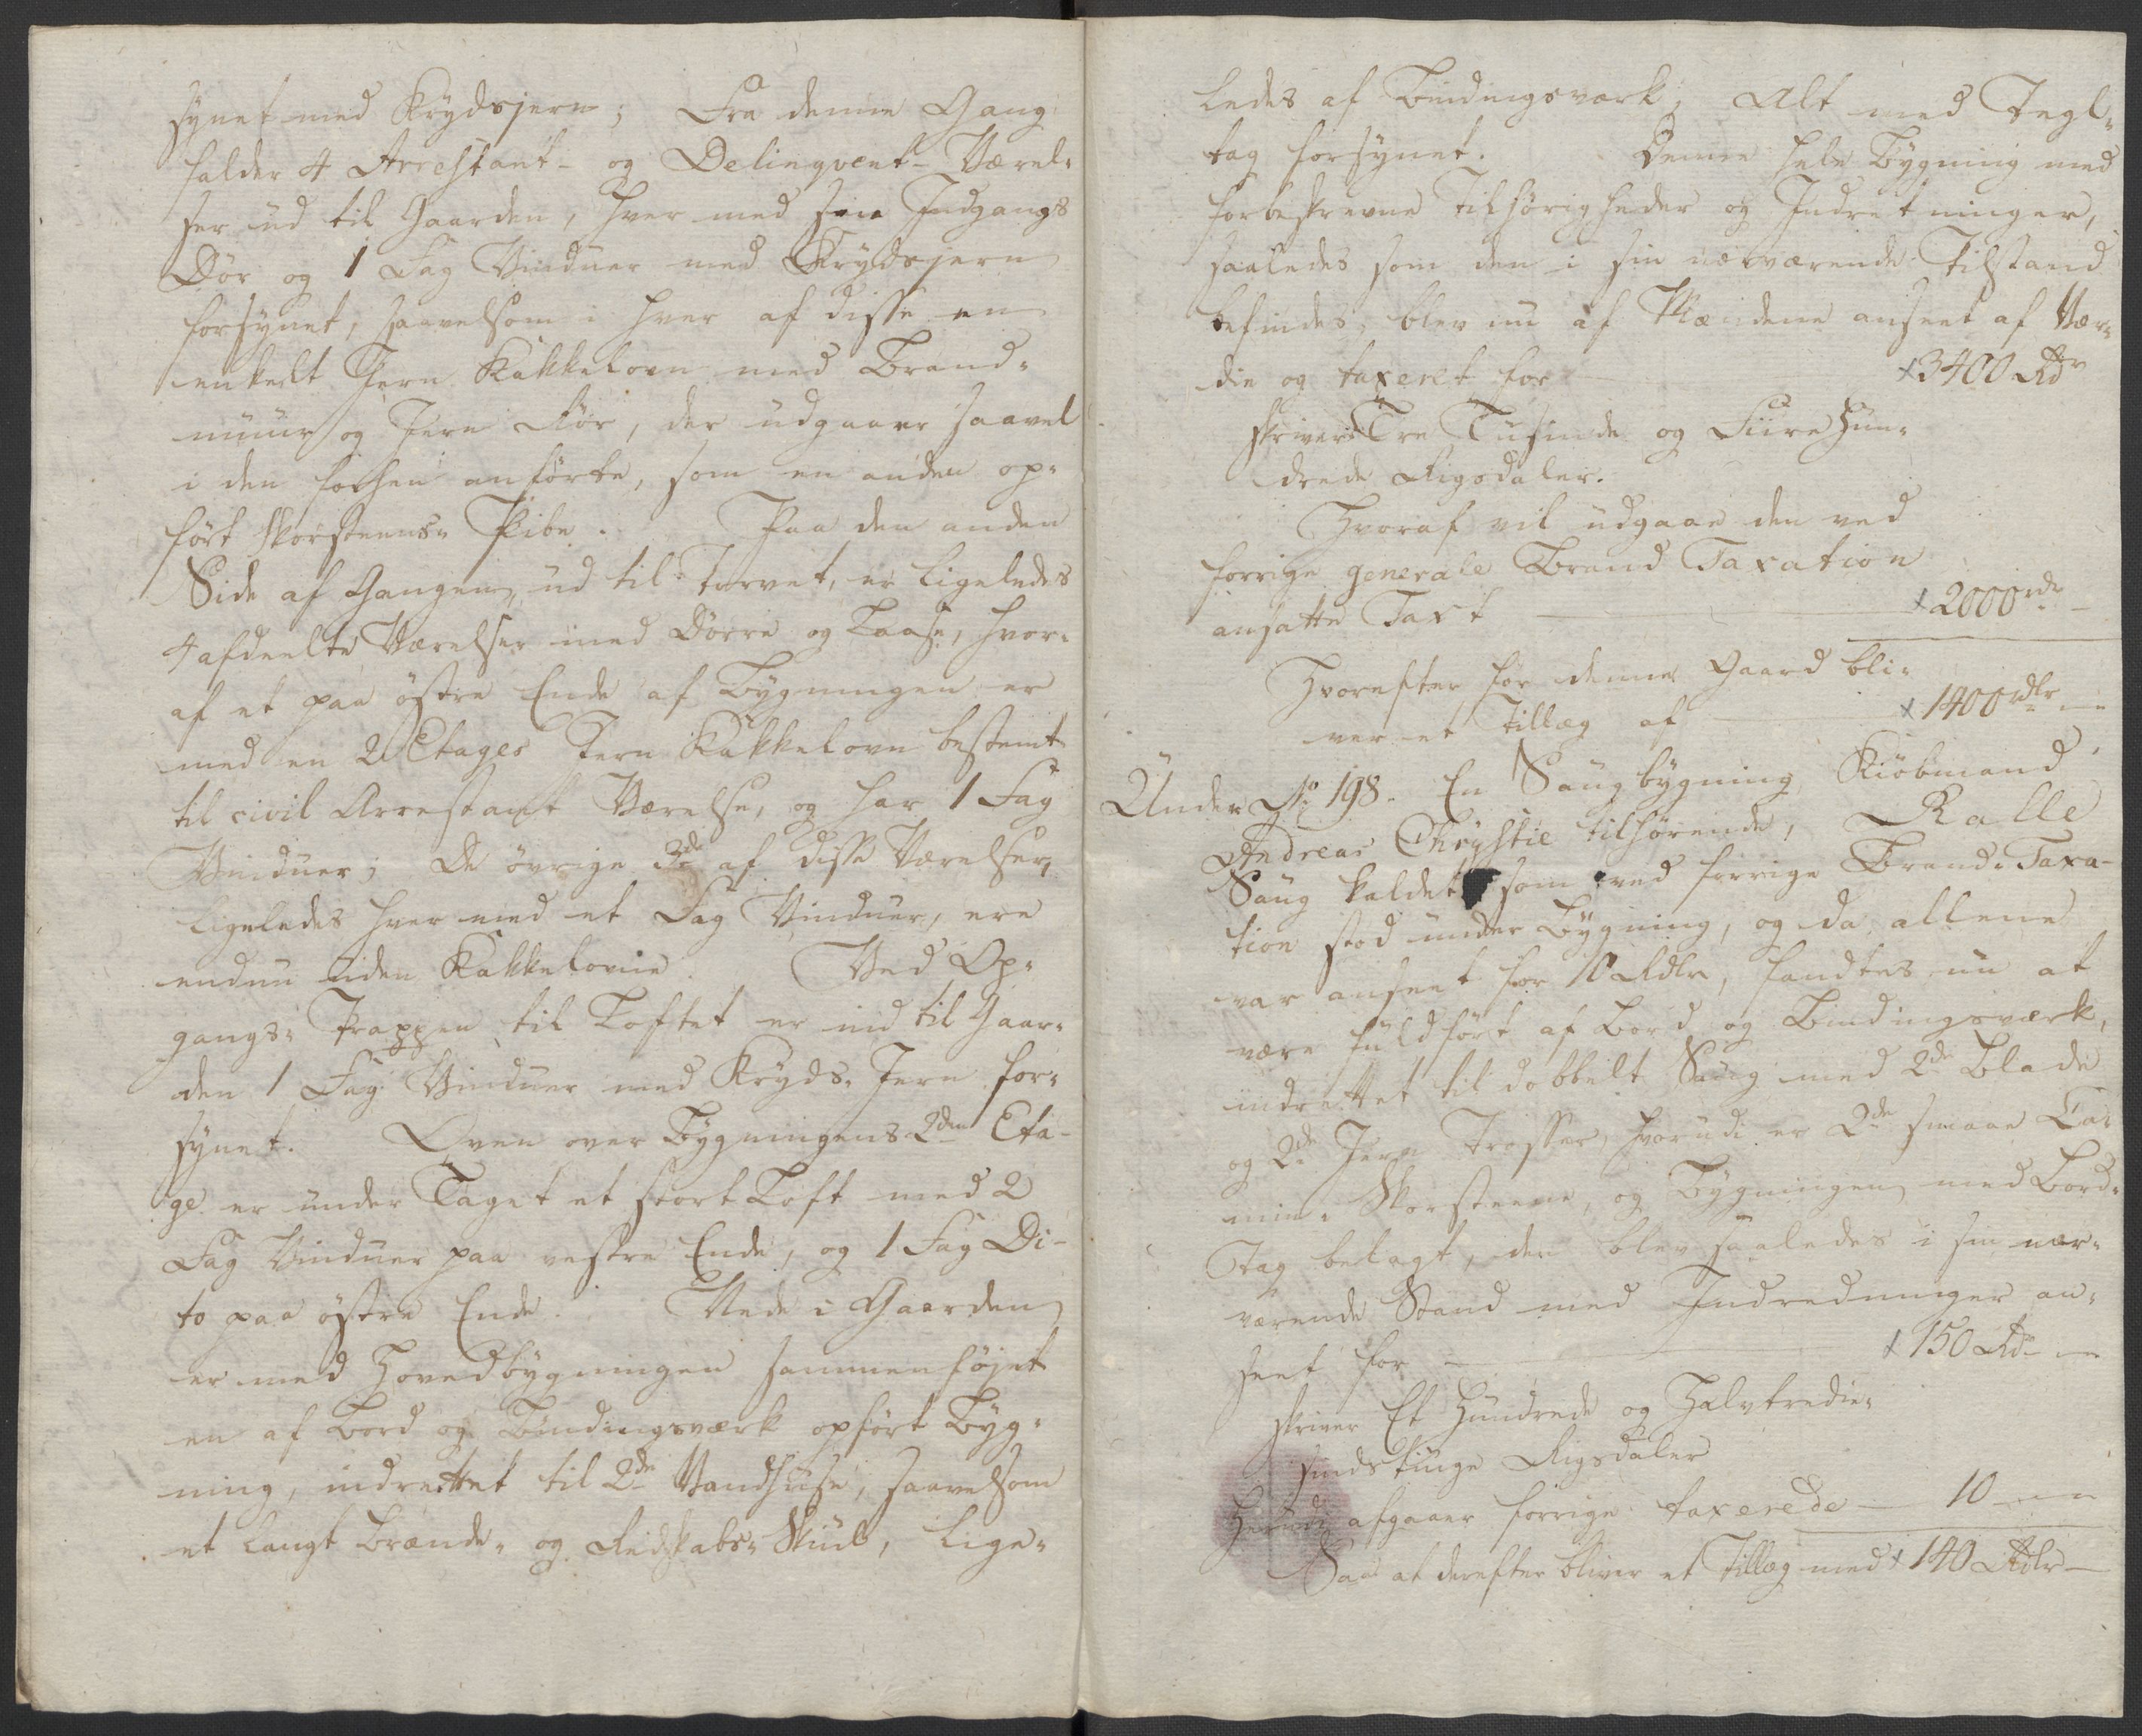 synet med Krydsjern; Fra denne Gang
falder 4 Arrestant- og Delinqvent-Værel-
ser ud til Gaarden, hver med sin Indgangs
Dør og 1 Fag Vinduer med Krydsjern
forsynet, saavelsom i hver af disse en
enkelt Jern Kakkelovn med Brand-
muur og Jern Rör, der udgaaer saavel
i den forhen anförte, som en anden op-
fört Skorsteens-Pibe. Paa den anden
Side af Gangen, ud til Torvet, er ligeledes
4 afdeelte Værelser med Dörre og Laase, hvor-
af et paa östre Ende af Bygningen er
med en 2 Etages Jern Kakkelovn bestemt
til civil Arrestant Værelse, og har 1 Fag
Vinduer; De övrige 3de af disse Værelser,
ligeledes hver med et Fag Vinduer, ere
endnu uden Kakkelovne. Ved Op-
gangs-Trappen til Loftet er ind til Gaar-
den 1 Fag Vinduer med Kryds-Jern for-
synet. Oven over Bygningens 2den Eta-
ge er under Taget et stort Loft med 2
Fag Vinduer paa vestre Ende, og 1 Fag Di-
to paa östre Ende. Nede i Gaarden
er med Hovedbygningen sammenföjet
en af Bord og Bindingsværk opfört Byg-
ning, indrettet til 2de Vandhuse, saavelsom
et langt Brænde- og Redskabs-Skuul, lige-
ledes af Bindingsværk, Alt med Tegl-
tag forsynet. Denne hele Bygning med
forbeskrevne Tilhörigheder og Indretninger,
saaledes som den i sin nærværende Tilstand
befindes, blev nu af Mændene anseet af Vær-
die og taxeret for 3400 Rdr
skriver Tre Tusinde og Fiire Hun-
drede Rigsdaler.
Hvoraf vil udgaae den ved
forrige generale Brand Taxation
ansatte Taxt 2000 rdr
Hvorefter for denne Gaard bli-
ver et Tillæg af 1400 rdlr
Under No 198. En Saugbygning Kiöbmand
Andreas Chrystie tilhørende, Kalle
Saug kaldet som ved forrige Brand-Taxa-
tion stod under Bygning, og da allene
var anseet for 10 Rdlr, fandtes nu at
være fuldfört af Bord og Bindingsværk,
indrettet til dobbelt Saug med 2de Blade
og 2de Jern Trosser, hvorudi er 2de smaae Ca-
min-Skorsteene, og Bygningen med Bord-
Tag belagt, den blev saaledes i sin nær-
værende Stand med Indredninger an-
seet for 150 Rdr
skriver Et Hundrede og Halvtredie-
sindstiuge Rigsdaler
Herudi afgaaer forrige taxerede 10
Saa at derefter bliver et Tillæg med 140 Rdlr